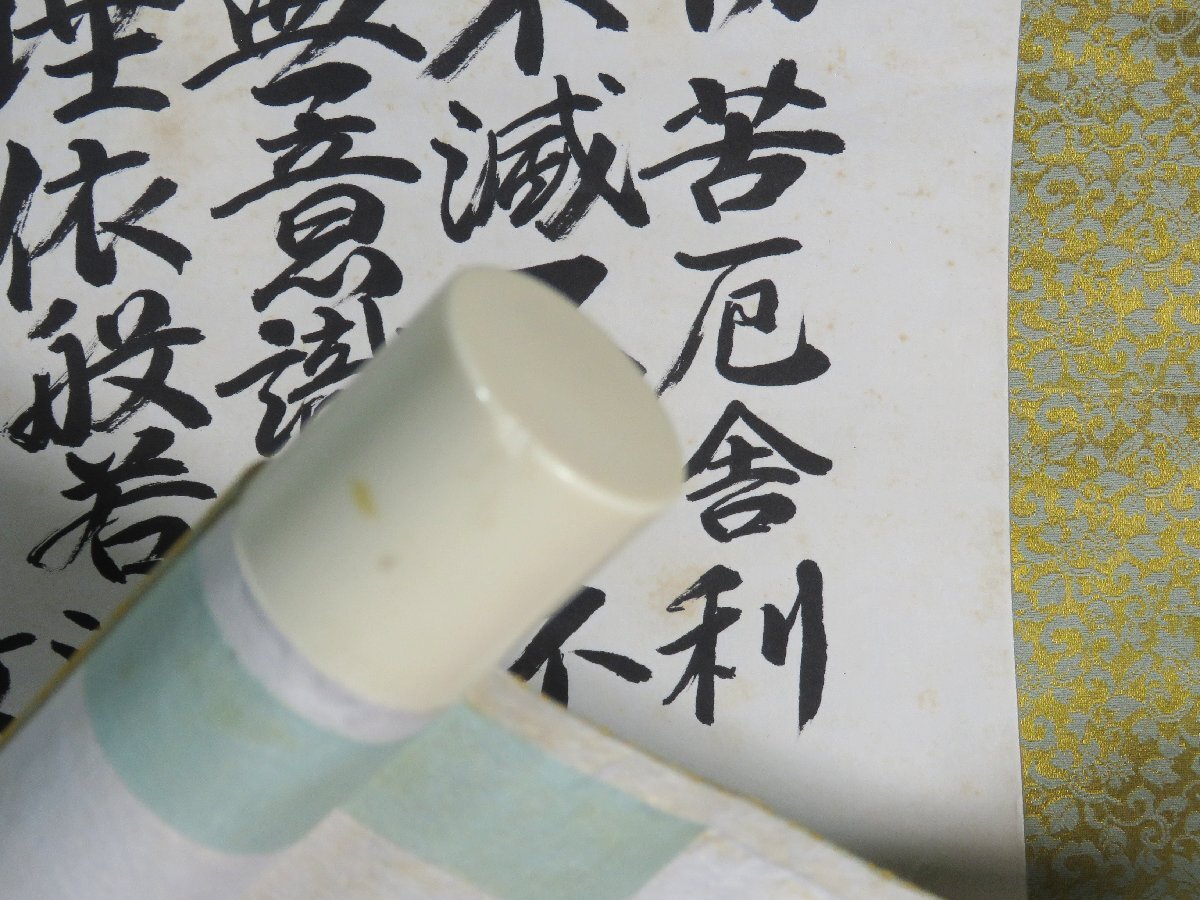 苦厄舍利
不滅不
無意識
埵依般若